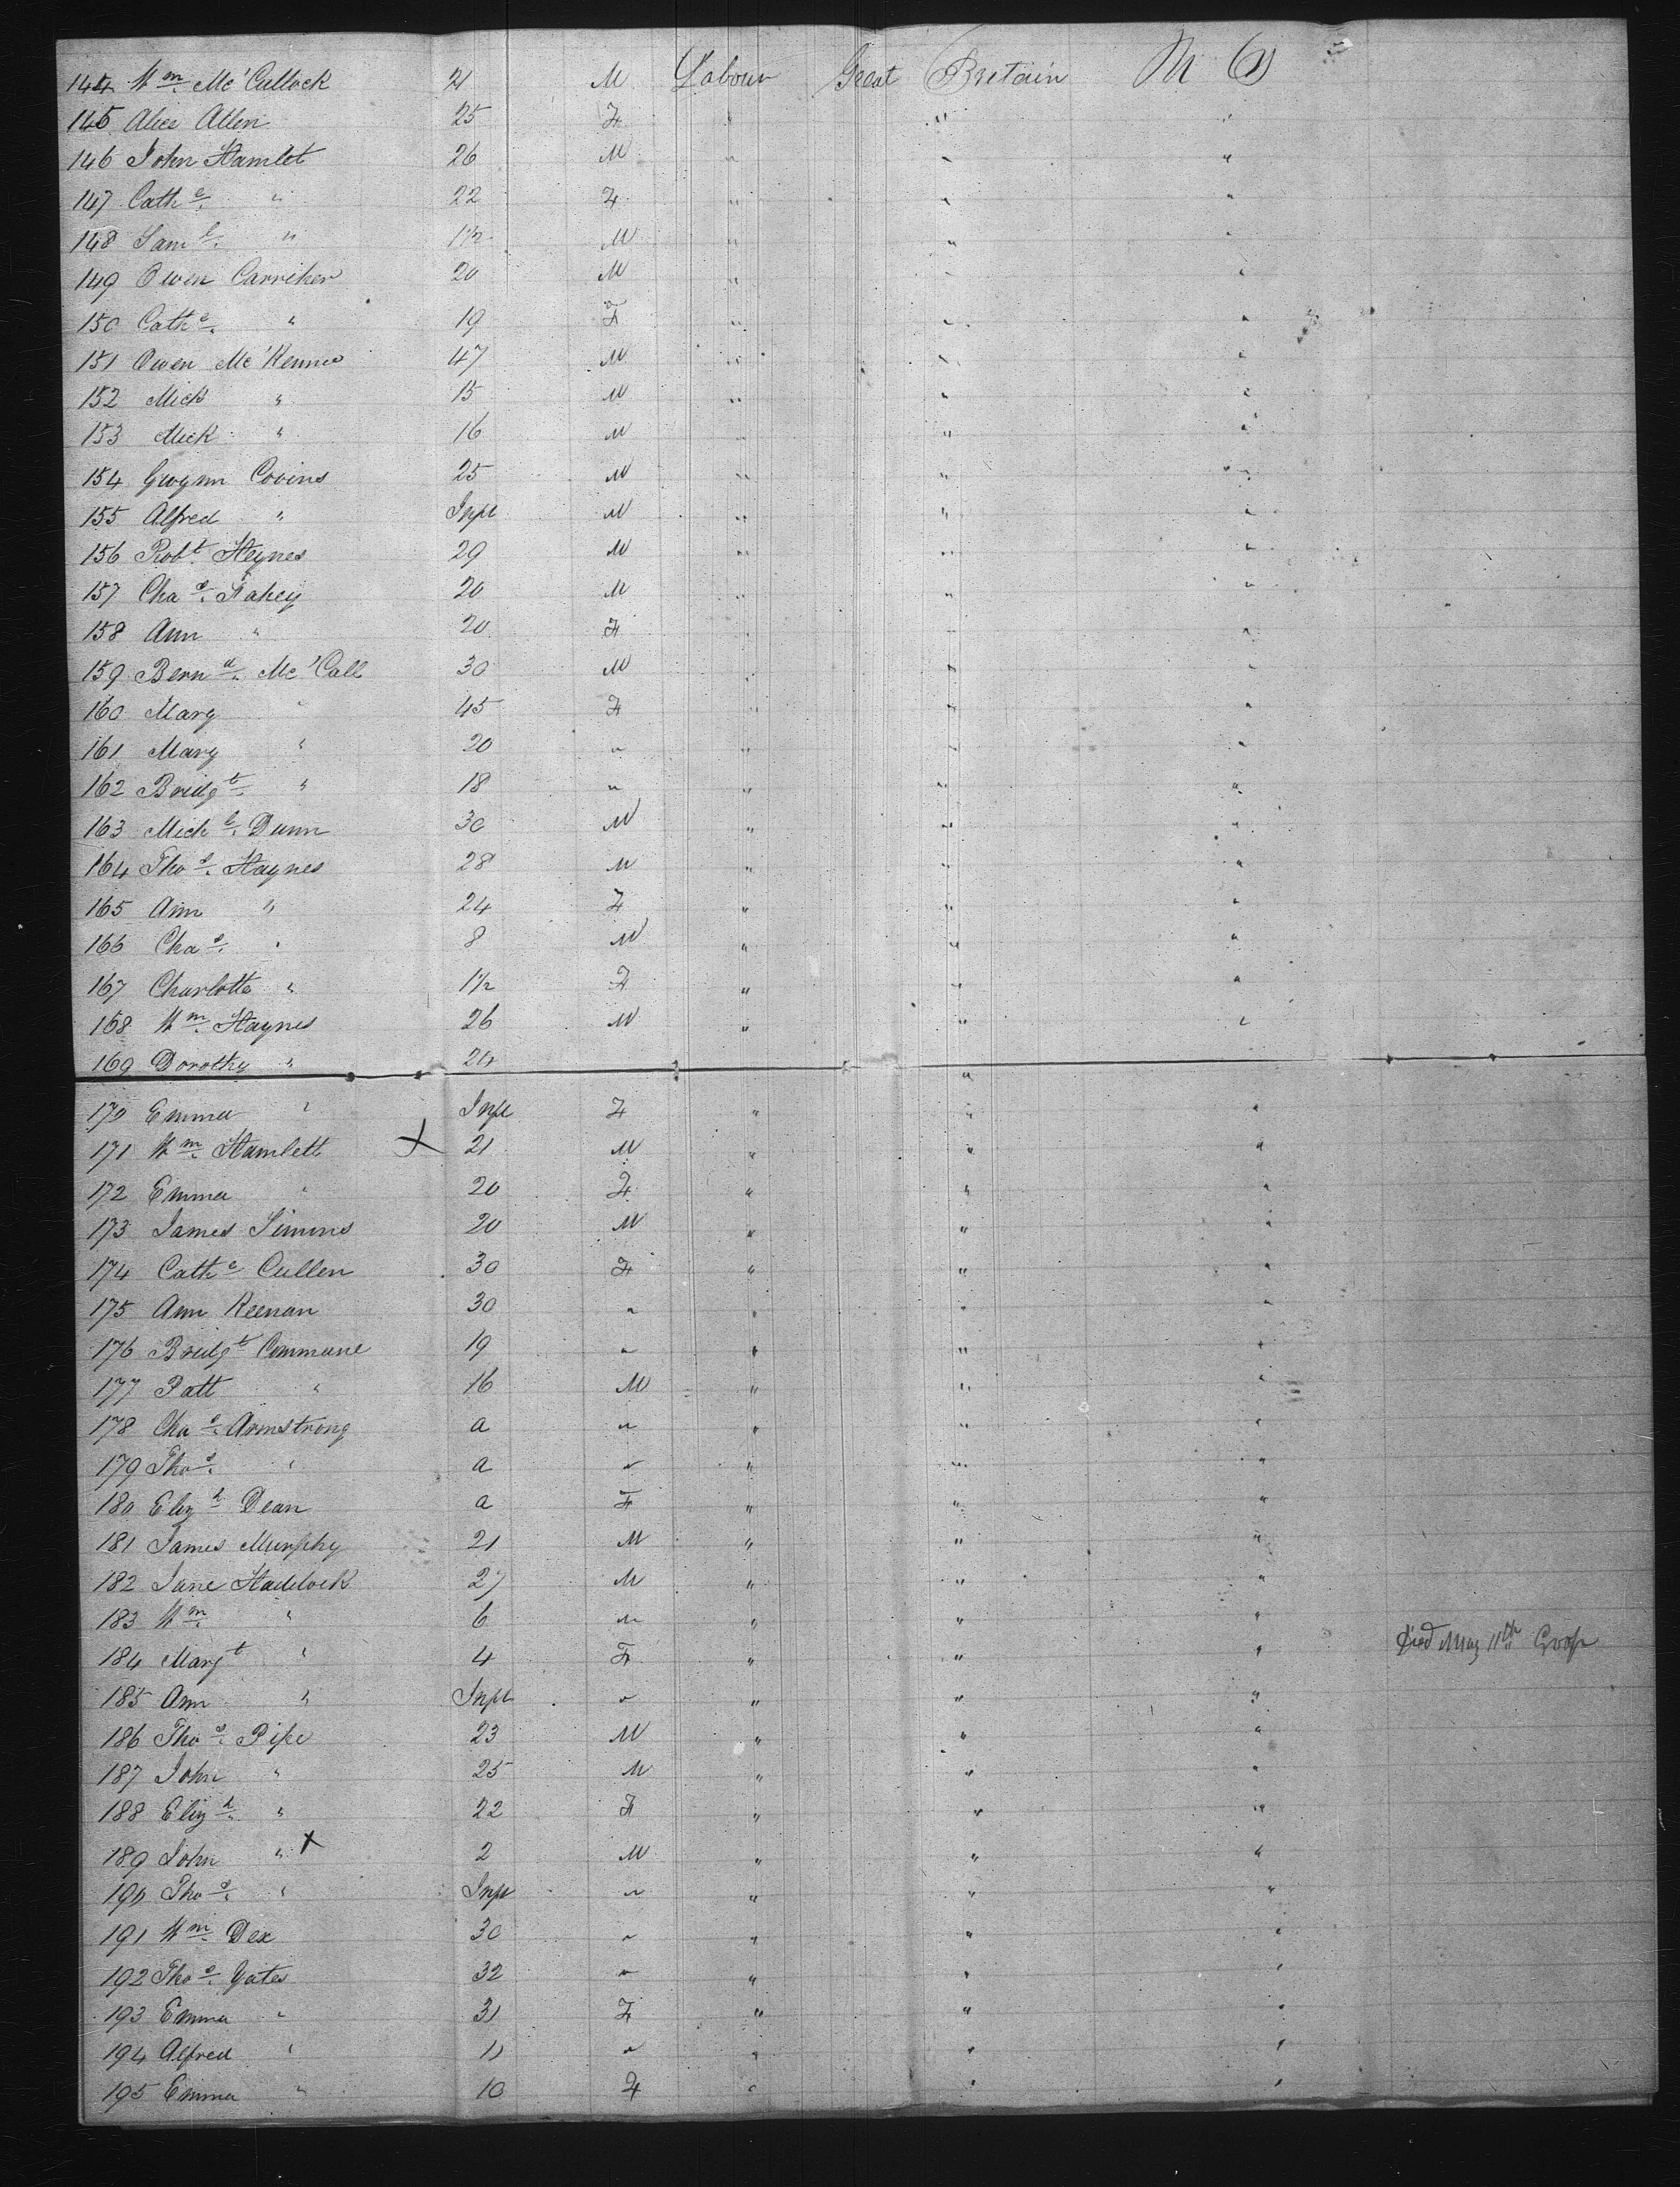 144 Wm. Mc'Cullock 21 M Labour Great Britain
145 Alice Allen 25 F " " "
146 John Hamlet 26 M " " "
147 Cathe. " 22 F " " "
148 Saml. " 1½ M " " "
149 Owen Carriher 20 M " " "
150 Cathe. " 19 F " " "
151 Owen Mc'Kenna 47 M " " "
152 Mick " 15 M " " "
153 Mick " 16 M " " "
154 Gwynn Covins 25 M " " "
155 Alfred " Inft M " " "
156 Robt. Heynes 29 M " " "
157 Chas. Fahey 20 M " " "
158 Ann " 20 F " " "
159 Bernd. Mc'Call 30 M " " "
160 Mary " 45 F " " "
161 Mary " 20 " " " "
162 Bridgt. " 18 " " " "
163 Michl. Dunn 30 M " " "
164 Thos. Haynes 28 M " " "
165 Ann " 24 F " " "
166 Chas. " 8 M " " "
167 Charlotte " 1½ F " " "
168 Wm. Haynes 26 M " " "
169 Dorothy " 24 "
170 Emma " Inft F " " "
171 Wm. Hamlett X 21 M " " "
172 Emma " 20 F " " "
173 James Simms 20 M " " "
174 Cathe Cullen 30 F " " "
175 Ann Keenan 30 " " " "
176 Bridgt Commune 19 " " " "
177 Patt " 16 M " " "
178 Chas. Armstrong a " " " "
179 Thos. " a " " " "
180 Elizh Dean a F " " "
181 James Murphy 21 M " " "
182 Jane Haddock 27 M " " "
183 Wm. " 6 " " " "
184 Margt " 4 F " " " Died May 11th
185 Ann " Inft " " " "
186 Thos. Pipe 23 M " " "
187 John " 25 M " " "
188 Elizh. " 22 F " " "
189 John " X 2 M " " "
190 Thos. " Inft " " " "
191 Wm. Dex 30 " " " "
192 Thos. Yates 32 " " " "
193 Emma " 31 F " " "
194 Alfred " 11 " " " "
195 Emma " 10 F " " "